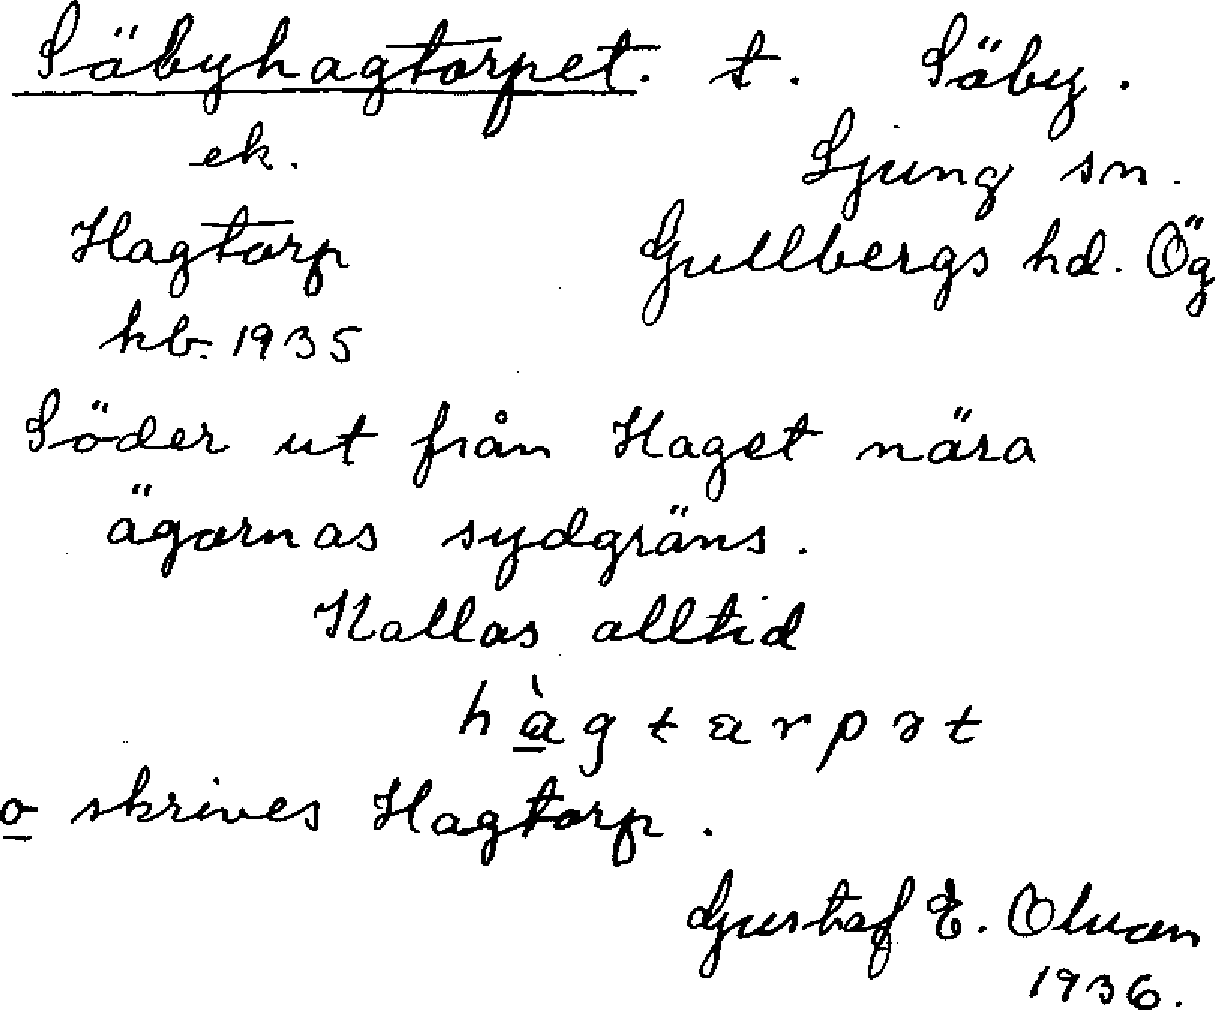 Säbyhagtorpet. t. Säby.
ek. Ljung sn.
Hagtorp Gullbergs hd. Ög
kb. 1935
Söder ut från Haget nära
ägornas sydgräns.
Kallas alltid
hàgtarpət
o skrives Hagtorp.
Gustaf E. Olman
1936.